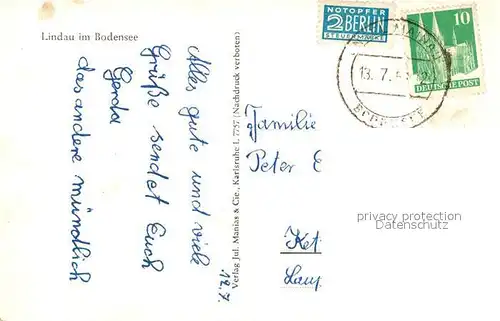 Lindau im Bodensee
Alles gute und viele
Grüße sendet Euch
Gerda
das andere mündlich
12.7.
Verlag Jul. Manias & Cie., Karlsruhe L 7757 (Nachdruck verboten)
NOTOPFER
2 BERLIN
STEUERMARKE
10
DEUTSCHE POST
MAINAU
13.7.5
BODENSEE
Familie
Peter E
Ket
privacy protection
Datenschutz